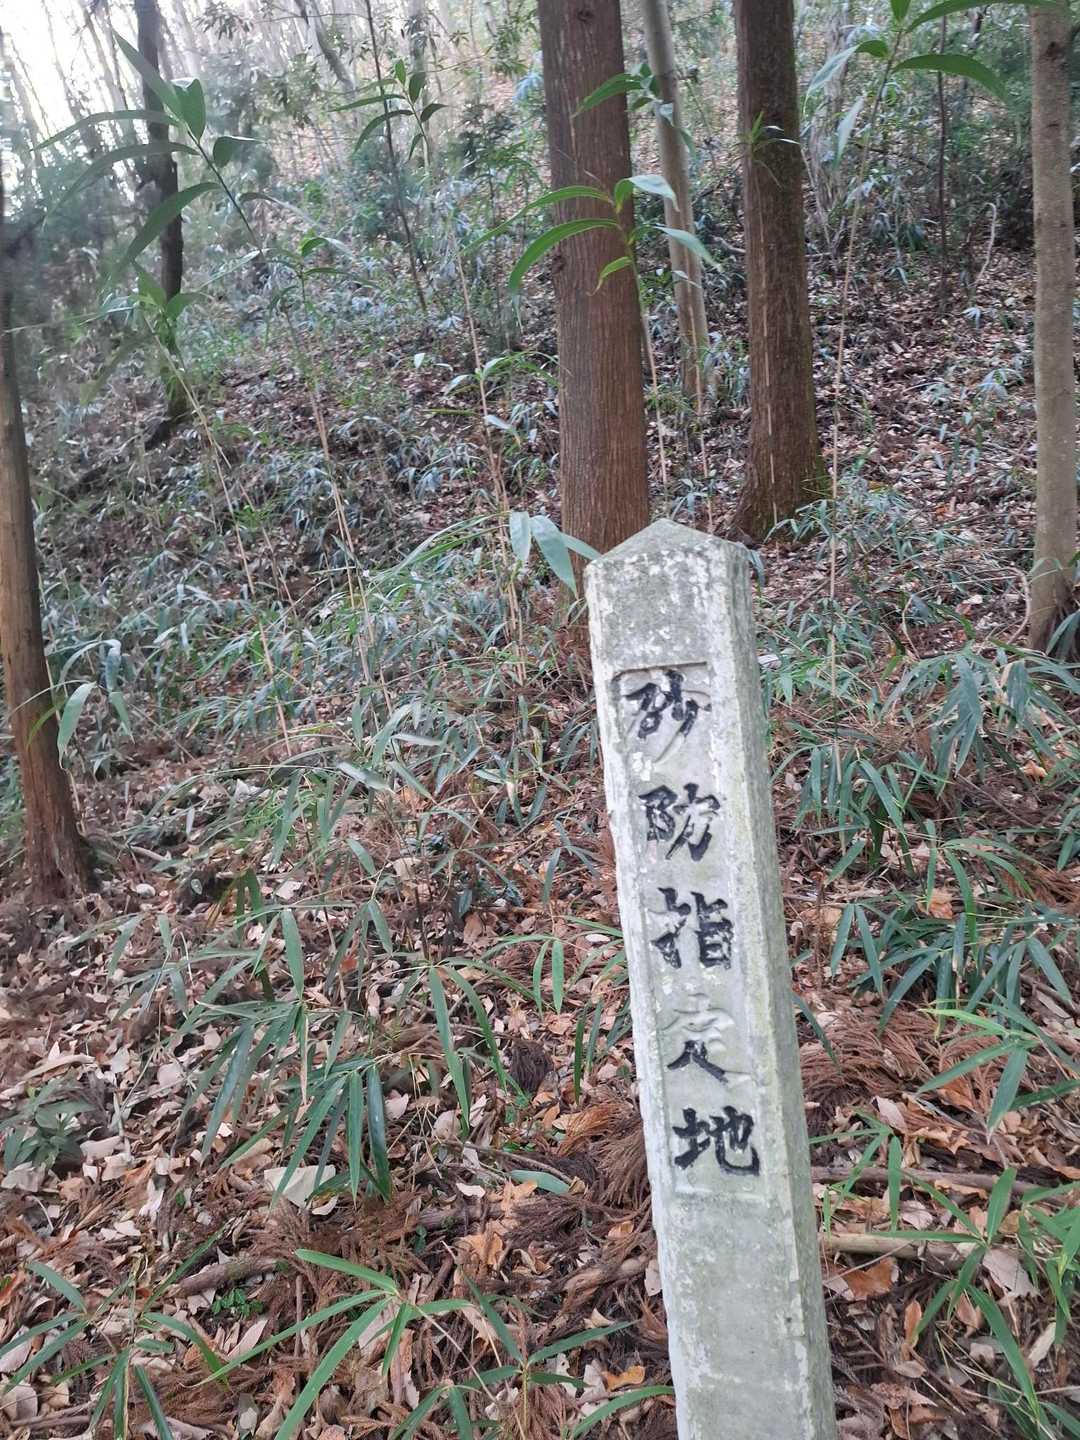 砂防指定地